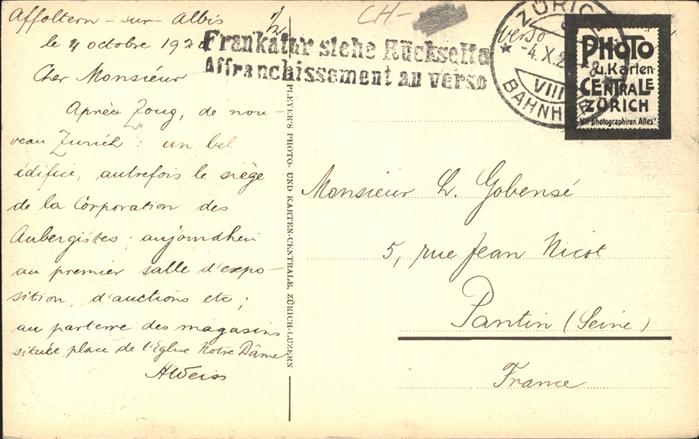 Affoltern-sur-Albis
le 4 octobre
Cher Monsieur
Après Zoug, de nou-
veau Zurich: un bel
édifice, autrefois le siège
de la Corporation des
Aubergistes; aujourdhui
au premier salle d'expo-
sition, d'auctions etc;
au parterre des magasins
située place de l'Eglise Notre Dâme
AWeiss
CH-
Frankatur siehe Rückseite
Affranchissement au verso
verso
ZÜRICH
-4.X.2
VIII
BAHNH
PHOTO
u. Karten
CENTRALE
ZÜRICH
Wir photographiren Alles!
PLEYER'S PHOTO- UND KARTEN-CENTRALE, ZÜRICH-LUZERN
Monsieur L. Gobensé
5, rue Jean Nicot
Pantin (Seine)
France